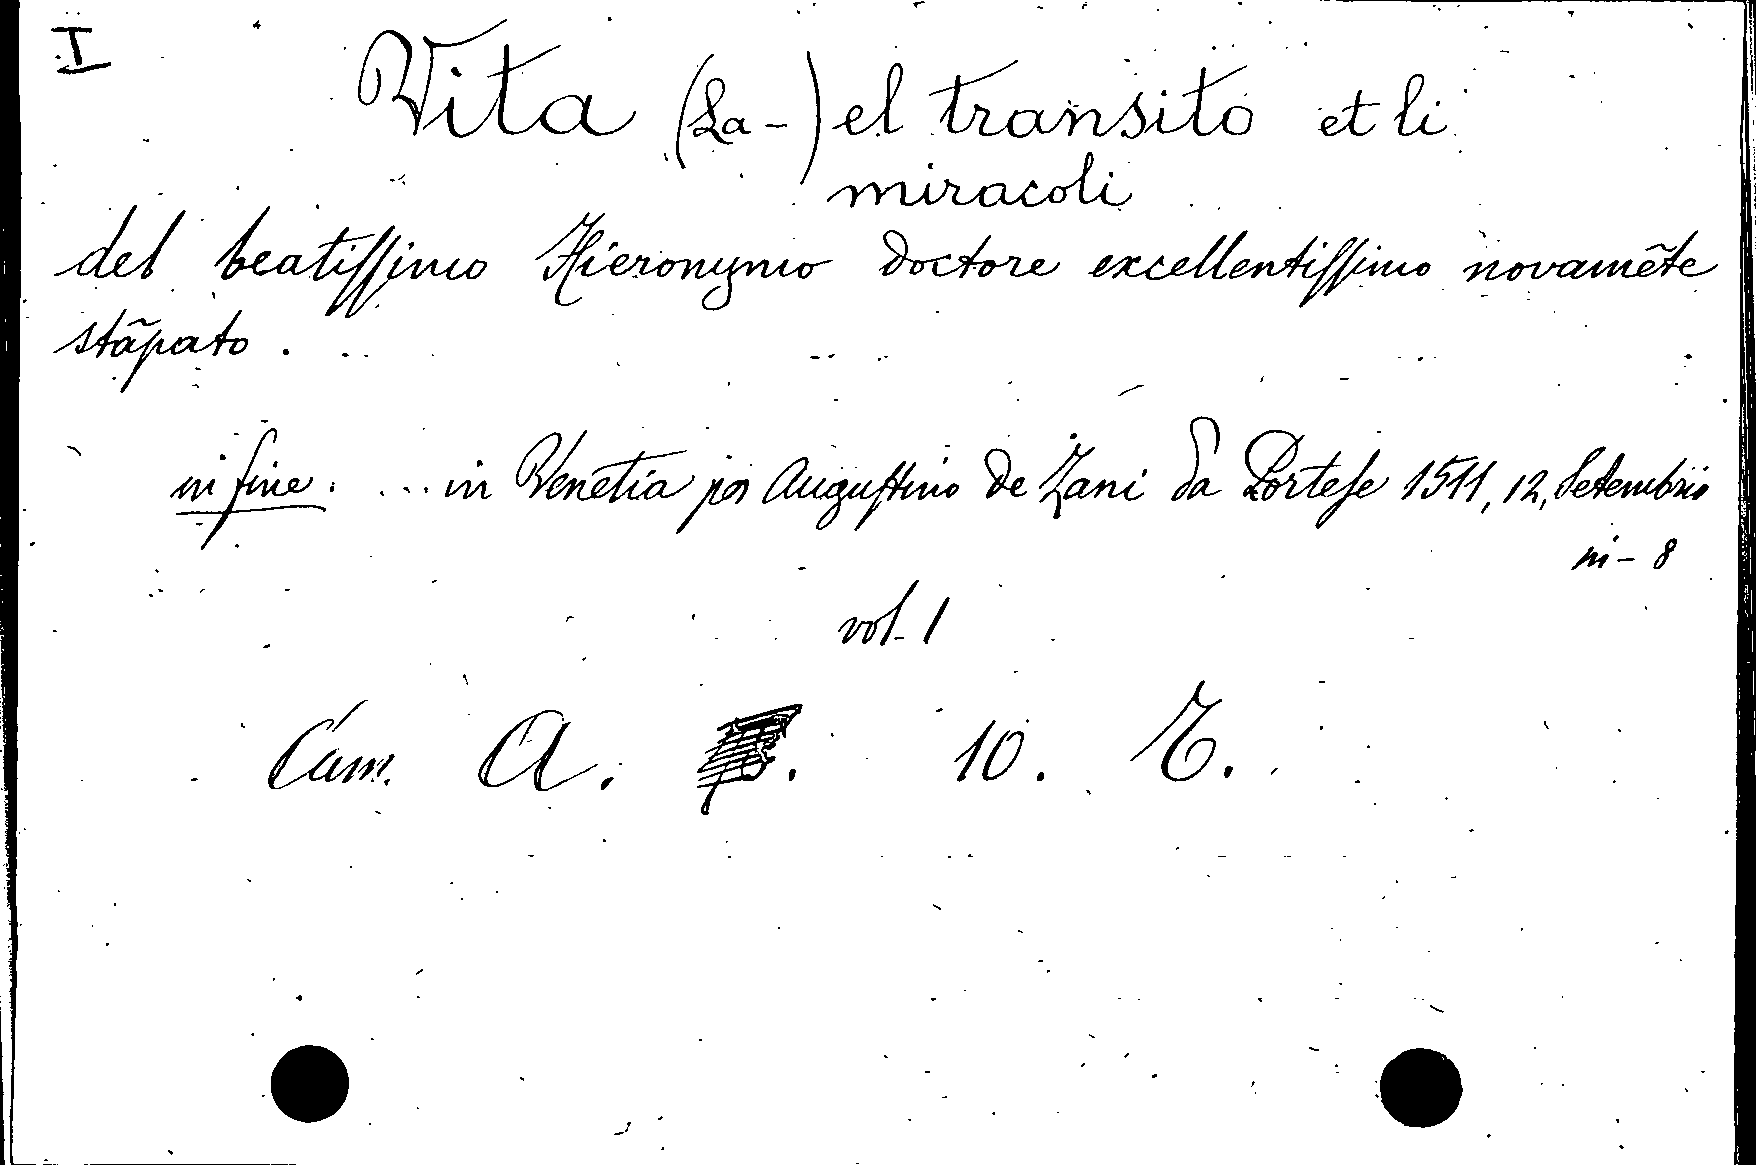 I
Vita (La-) el transito et li
miracoli
del beatissimo Hieronymo doctore excellentissimo novamẽte
stãpato.
in fine. ... in Venetia per Augustino de Zani da Portese 1511, 12, Setembrio
in-8
vol. 1
Cam. A. 10.